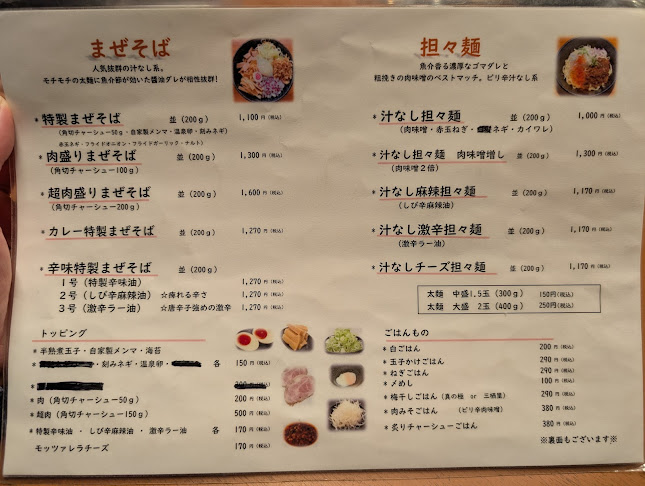 まぜそば
人気抜群の汁なし系。
モチモチの太麺に魚介節が効いた醤油ダレが相性抜群!
*特製まぜそば 並(200g) 1,100円(税込)
(角切チャーシュー50g・自家製メンマ・温泉卵・刻みネギ
赤玉ネギ・フライドオニオン・フライドガーリック・ナルト)
*肉盛りまぜそば 並(200g) 1,300円(税込)
(角切チャーシュー100g)
*超肉盛りまぜそば 並(200g) 1,600円(税込)
(角切チャーシュー200g)
*カレー特製まぜそば 並(200g) 1,270円(税込)
*辛味特製まぜそば 並(200g)
1号(特製辛味油) 1,270円(税込)
2号(しび辛麻辣油) ☆痺れる辛さ 1,270円(税込)
3号(激辛ラー油) ☆唐辛子強めの激辛 1,270円(税込)
トッピング
*半熟煮玉子・自家製メンマ・海苔
・刻みネギ・温泉卵・ 各 150円(税込)
*肉(角切チャーシュー50g) 200円(税込)
*超肉(角切チャーシュー150g) 500円(税込)
*特製辛味油・しび辛麻辣油・激辛ラー油 各 170円(税込)
モッツァレラチーズ 170円(税込)
担々麺
魚介香る濃厚なゴマダレと
粗挽きの肉味噌のベストマッチ。ピリ辛汁なし系
*汁なし担々麺 並(200g) 1,000円(税込)
(肉味噌・赤玉ねぎ・ネギ・カイワレ)
*汁なし担々麺 肉味噌増し 並(200g) 1,300円(税込)
(肉味噌2倍)
*汁なし麻辣担々麺 並(200g) 1,170円(税込)
(しび辛麻辣油)
*汁なし激辛担々麺 並(200g) 1,170円(税込)
(激辛ラー油)
*汁なしチーズ担々麺 並(200g) 1,170円(税込)
太麺 中盛1.5玉(300g) 150円(税込)
太麺 大盛 2玉(400g) 250円(税込)
ごはんもの
*白ごはん 200円(税込)
*玉子かけごはん 290円(税込)
*ねぎごはん 290円(税込)
*〆めし 100円(税込)
*梅干しごはん(真の極 or 三桃里) 290円(税込)
*肉みそごはん (ピリ辛肉味噌) 380円(税込)
*炙りチャーシューごはん 380円(税込)
※裏面もございます※